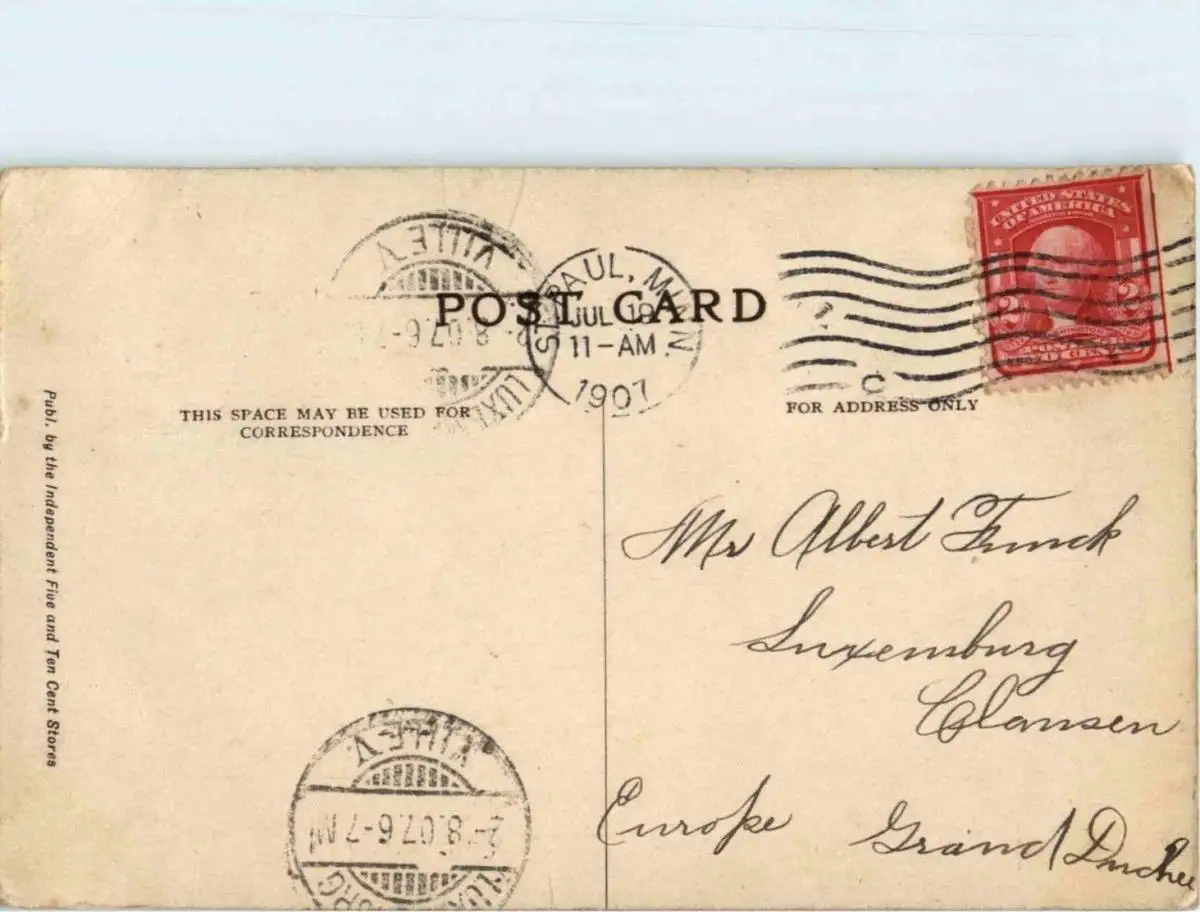 UNITED STATES
OF AMERICA
2 2
POST CARD
ST. PAUL, MINN.
JUL 19
11-AM
1907
LUXEMBOURG
VILLE
THIS SPACE MAY BE USED FOR
CORRESPONDENCE
FOR ADDRESS ONLY
Publ. by the Independent Five and Ten Cent Stores
Mr Albert Funck
Luxemburg
Clausen
Europe Grand Duchee
LUXEMBOURG
VILLE
2-8.07.6-7